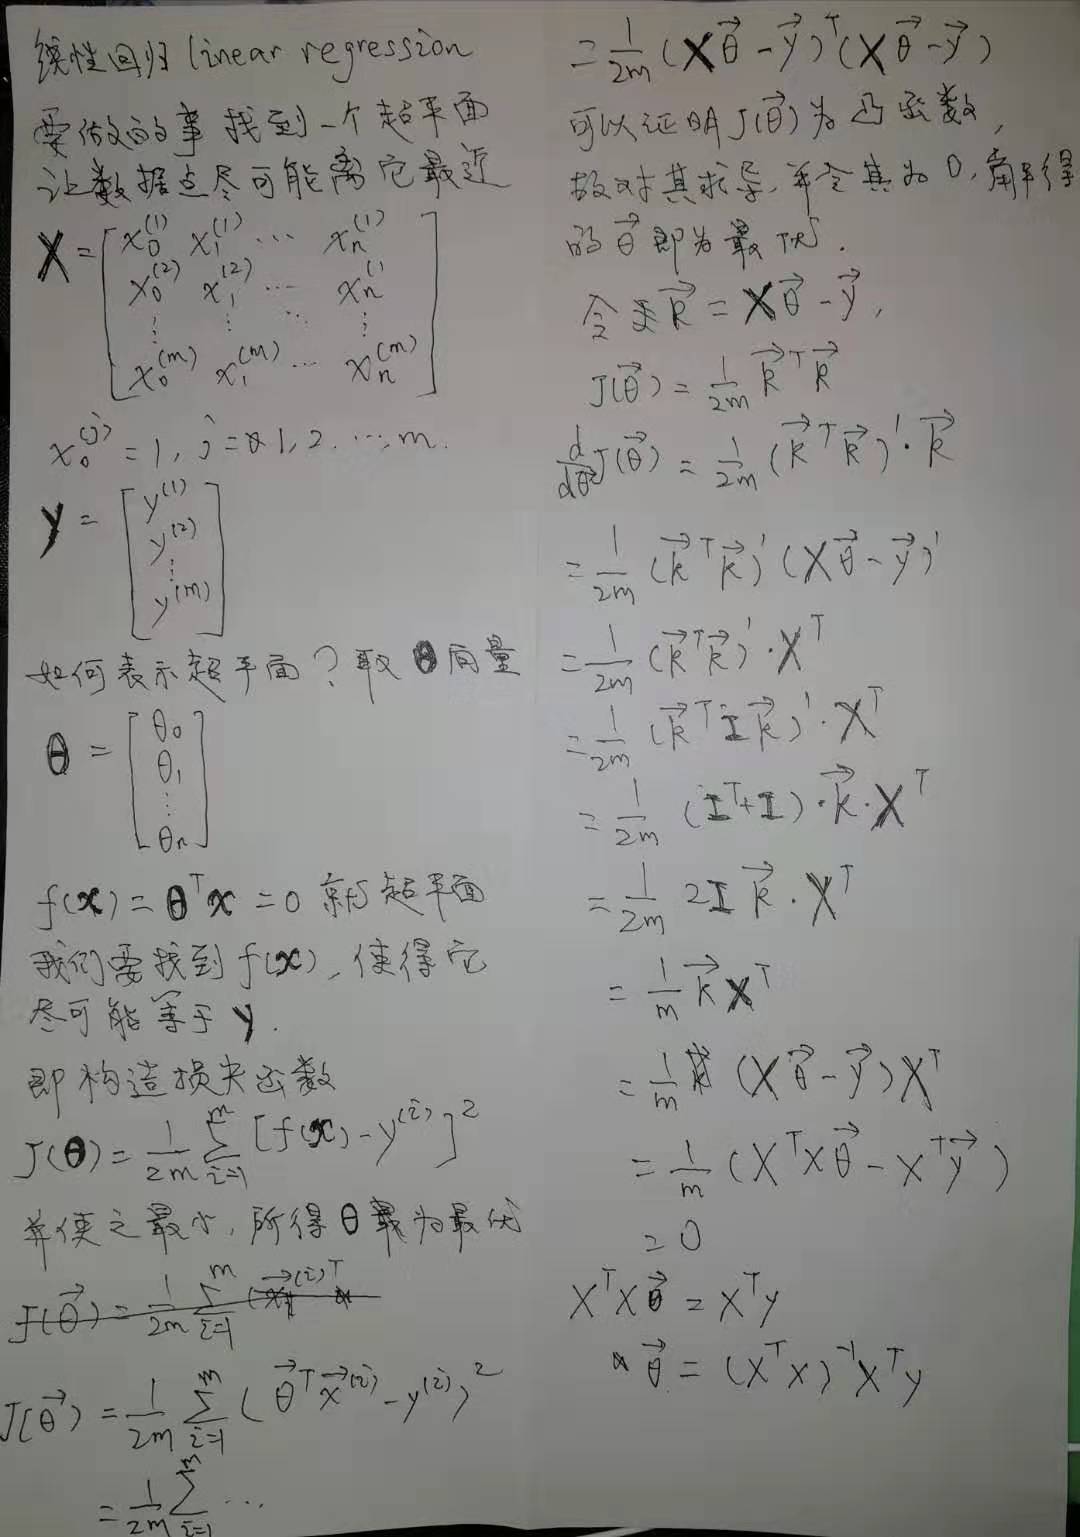 线性回归 linear regression
要做的事 找到一个超平面
让数据点尽可能离它最近
X = [x₀⁽¹⁾ x₁⁽¹⁾ ⋯ xₙ⁽¹⁾
x₀⁽²⁾ x₁⁽²⁾ ⋯ xₙ⁽¹⁾
⋮ ⋮ ⋱ ⋮
x₀⁽ᵐ⁾ x₁⁽ᵐ⁾ ⋯ xₙ⁽ᵐ⁾]
x₀⁽ʲ⁾ = 1, j = 1, 2. ⋯, m.
y = [y⁽¹⁾
y⁽²⁾
⋮
y⁽ᵐ⁾]
如何表示超平面？取 θ 向量
θ = [θ₀
θ₁
⋮
θₙ]
f(x) = θᵀx = 0 就是超平面
我们要找到 f(x), 使得它
尽可能等于 y.
即构造损失函数
J(θ) = 1/2m Σᵢ₌₁ᵐ [f(x) - y⁽ⁱ⁾]²
并使之最小, 所得 θ 为最优
J(θ⃗) = 1/2m Σᵢ₌₁ᵐ (x⃗⁽ⁱ⁾ᵀ
J(θ⃗) = 1/2m Σᵢ₌₁ᵐ (θ⃗ᵀx⃗⁽ⁱ⁾ - y⁽ⁱ⁾)²
= 1/2m Σᵢ₌₁ᵐ ⋯
= 1/2m (Xθ⃗ - y⃗)ᵀ(Xθ⃗ - y⃗)
可以证明 J(θ⃗) 为凸函数,
故对其求导, 并令其为 0, 解得
的 θ⃗ 即为最优.
令 k⃗ = Xθ⃗ - y⃗,
J(θ⃗) = 1/2m k⃗ᵀk⃗
d/dθ⃗ J(θ⃗) = 1/2m (k⃗ᵀk⃗)' · k⃗
= 1/2m (k⃗ᵀk⃗)' (Xθ⃗ - y⃗)'
= 1/2m (k⃗ᵀk⃗)' · Xᵀ
= 1/2m (k⃗ᵀIk⃗)' · Xᵀ
= 1/2m (Iᵀ+I) · k⃗ · Xᵀ
= 1/2m 2I k⃗ · Xᵀ
= 1/m k⃗ Xᵀ
= 1/m (Xθ⃗ - y⃗)Xᵀ
= 1/m (XᵀXθ⃗ - Xᵀy⃗)
= 0
XᵀXθ⃗ = Xᵀy
θ⃗ = (XᵀX)⁻¹Xᵀy